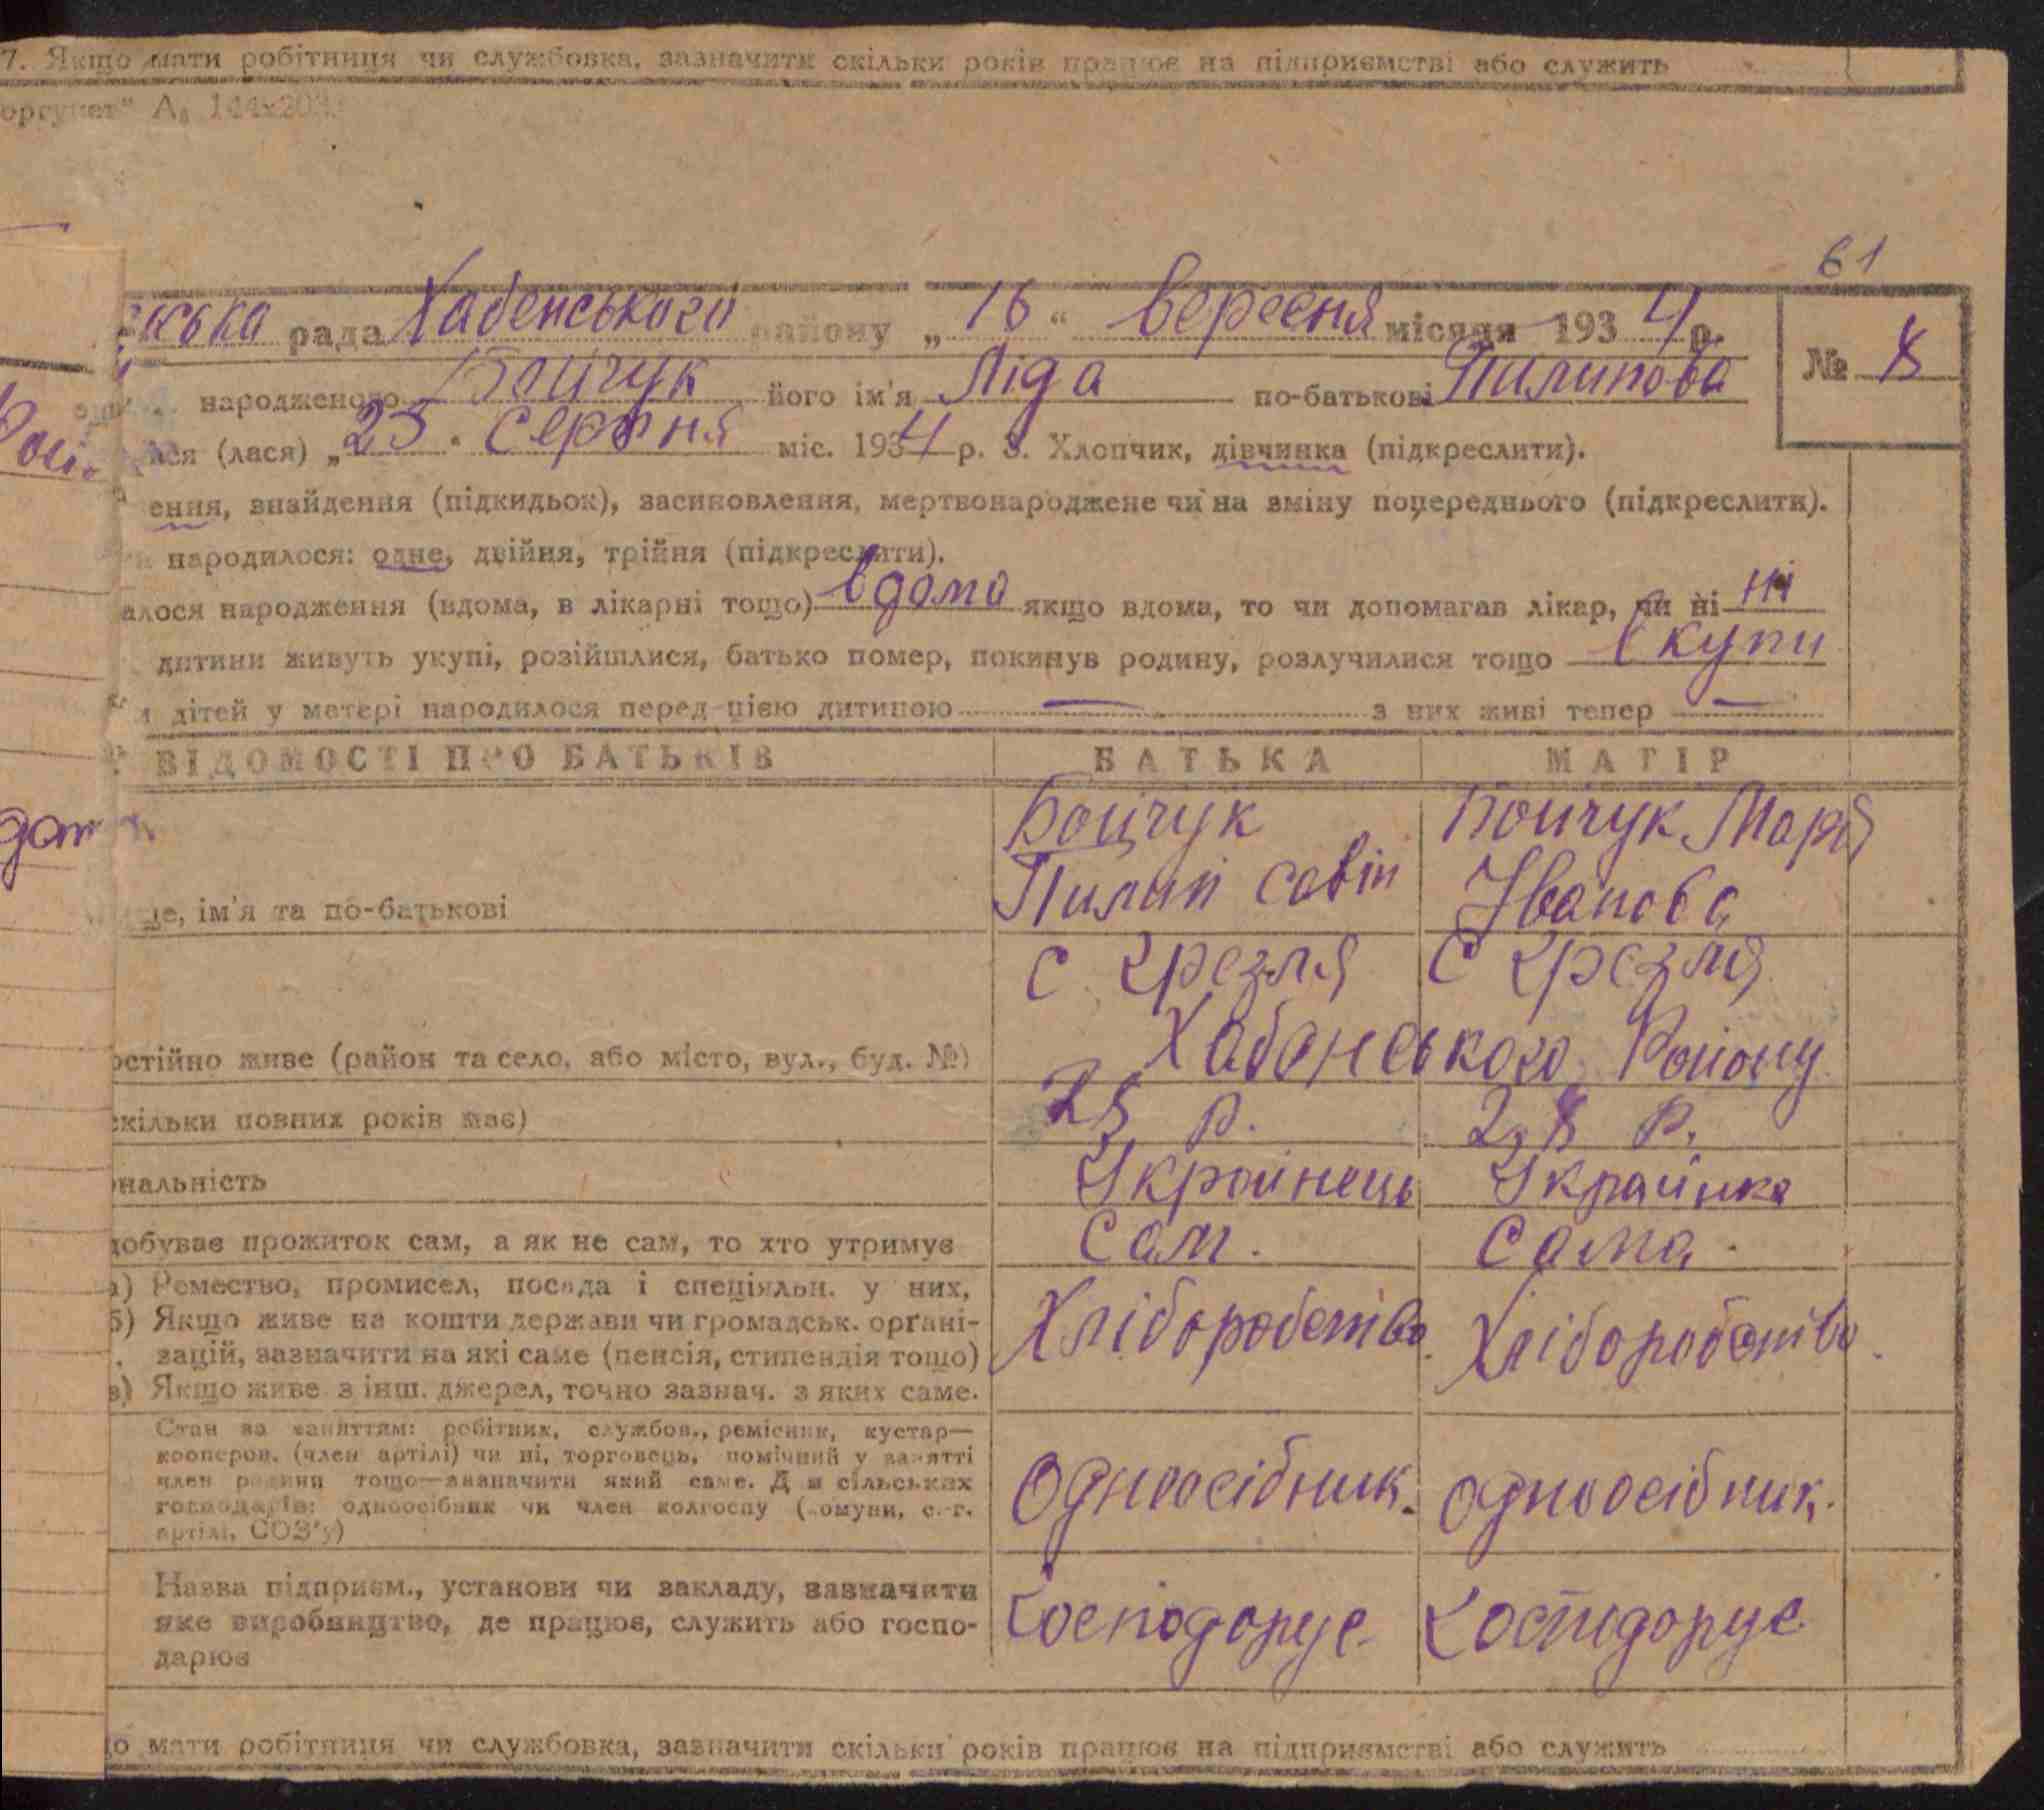 7. Якщо мати робітниця чи службовка, зазначити скільки років працює на підприємстві або служить
61
ська рада Хабенського району „ 16 “ вересня місяця 193 4 р.
№ 8
народженого Бойчук його ім'я Ліда по-батькові Пилипова
ася (лася) „ 25 " серпня міс. 1934 р. 3. Хлопчик, дівчинка (підкреслити).
ення, знайдення (підкидьок), засиновлення, мертвонароджене чи на зміну попереднього (підкреслити).
народилося: одне, двійня, трійня (підкреслити).
алося народження (вдома, в лікарні тощо) вдома якщо вдома, то чи допомагав лікар, чи ні ні
дитини живуть укупі, розійшлися, батько помер, покинув родину, розлучилися тощо вкупи
дітей у матері народилося перед цією дитиною — з них живі тепер —
ВІДОМОСТІ ПРО БАТЬКІВ БАТЬКА МАТІР
Бойчук Бойчук Марія
Пилип Савін Іванова
ще, ім'я та по-батькові
с Грезля с Грезля
Хабенського Району
остійно живе (район та село, або місто, вул., буд. №)
скільки повних років має) 25 р. 28 р.
ональність Украйнець Украйнка
добуває прожиток сам, а як не сам, то хто утримує Сам. Сама.
а) Ремество, промисел, посада і спеціяльн. у них,
б) Якщо живе на кошти держави чи громадськ. орґані-
зацій, зазначити на які саме (пенсія, стипендія тощо) Хліборобство. Хліборобство.
в) Якщо живе з інш. джерел, точно зазнач. з яких саме.
Стан за заняттям: робітник, службов., ремісник, кустар—
кооперов. (член артілі) чи ні, торговець, помічний у занятті
член родини тощо—зазначити який саме. Для сільських
господарів: одноосібник чи член колгоспу (комуни, с.-г.
артілі, СОЗ'у) Одноосібник. Одноосібник.
Назва підприєм., установи чи закладу, зазначити
яке виробництво, де працює, служить або госпо- Господорує Господорує
дарює
о мати робітниця чи службовка, зазначити скільки років працює на підприємстві або служить